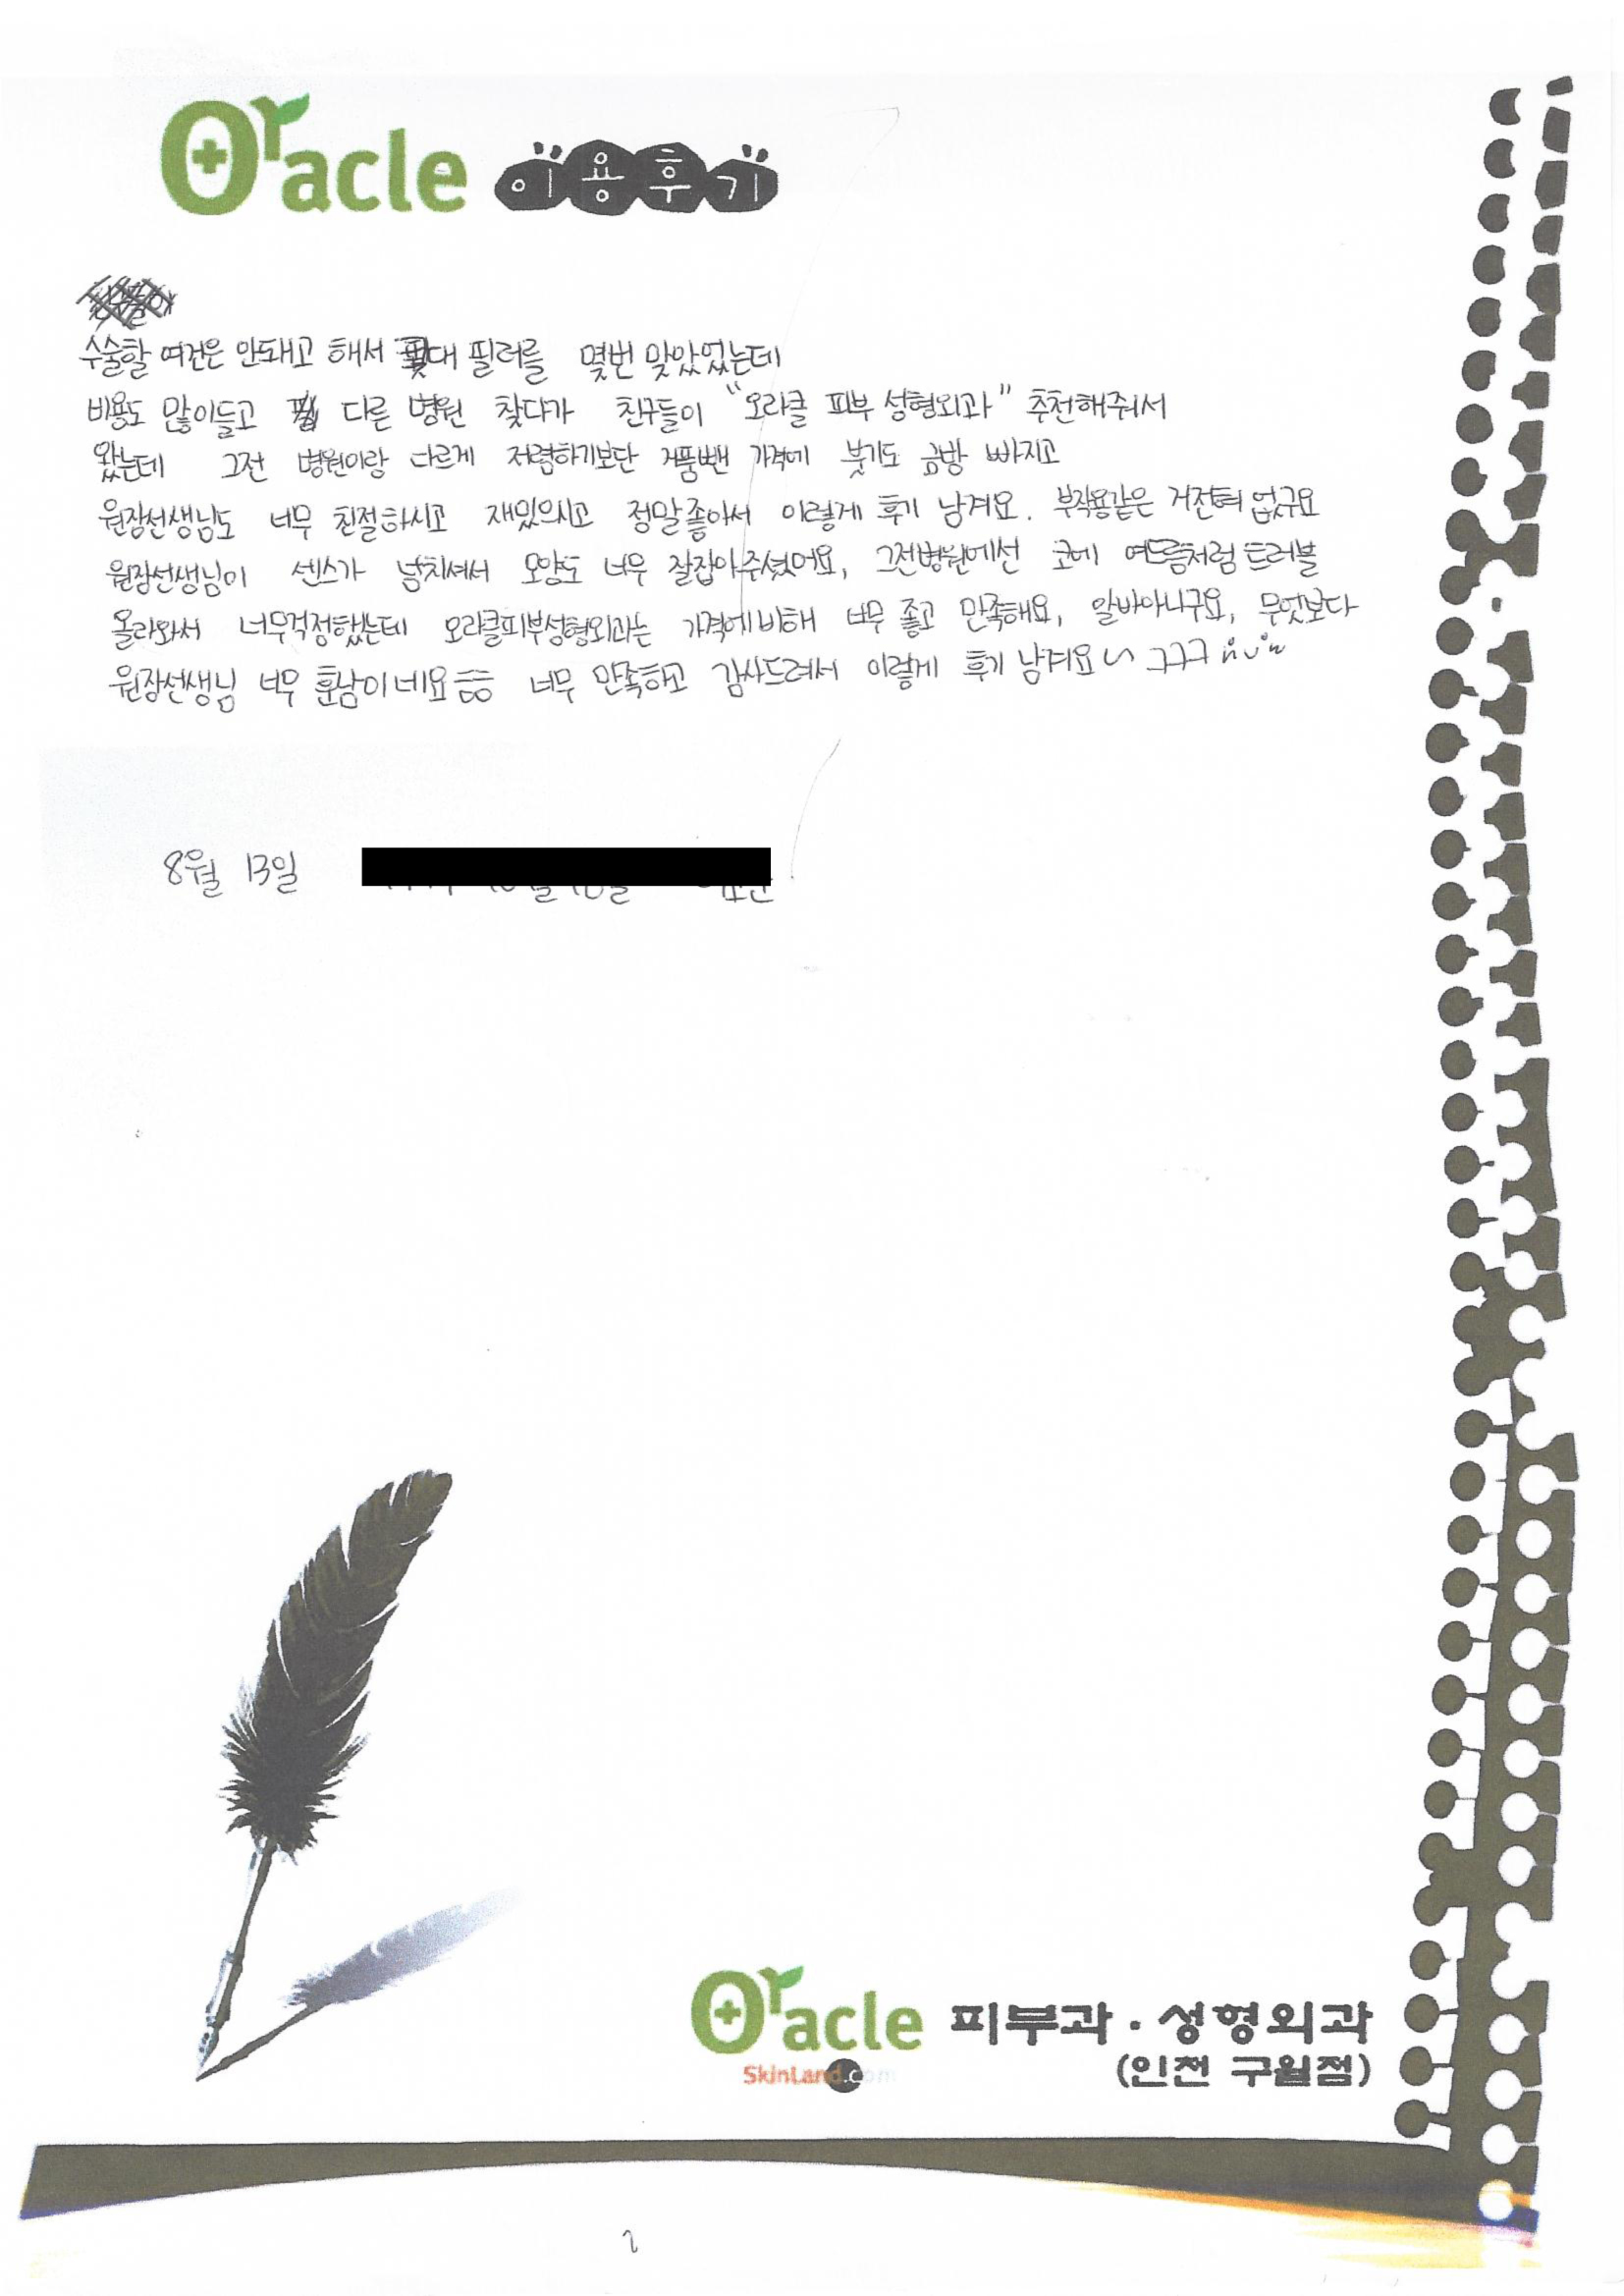 Oracle 이용후기
수술할 여건은 안돼고 해서 콧대 필러를 몇번 맞았었는데
비용도 많이들고 다른 병원 찾다가 친구들이 "오라클 피부 성형외과" 추천해줘서
왔는데 그전 병원이랑 다르게 저렴하기보단 거품뺀 가격에 붓기도 금방 빠지고
원장선생님도 너무 친절하시고 재밌으시고 정말좋아서 이렇게 후기 남겨요. 부작용같은 거전혀 없구요
원장선생님이 센스가 넘치셔서 모양도 너무 잘잡아주셨어요, 그전병원에선 코에 여드름처럼 트러블
올라와서 너무걱정했는데 오라클피부성형외과는 가격에비해 너무 좋고 만족해요, 알바아니구요, 무엇보다
원장선생님 너무 훈남이네요 너무 만족하고 감사드려서 이렇게 후기 남겨요~ ㅋㅋㅋ
8월 13일
Oracle 피부과·성형외과
SkinLand.com
(인천 구월점)
2